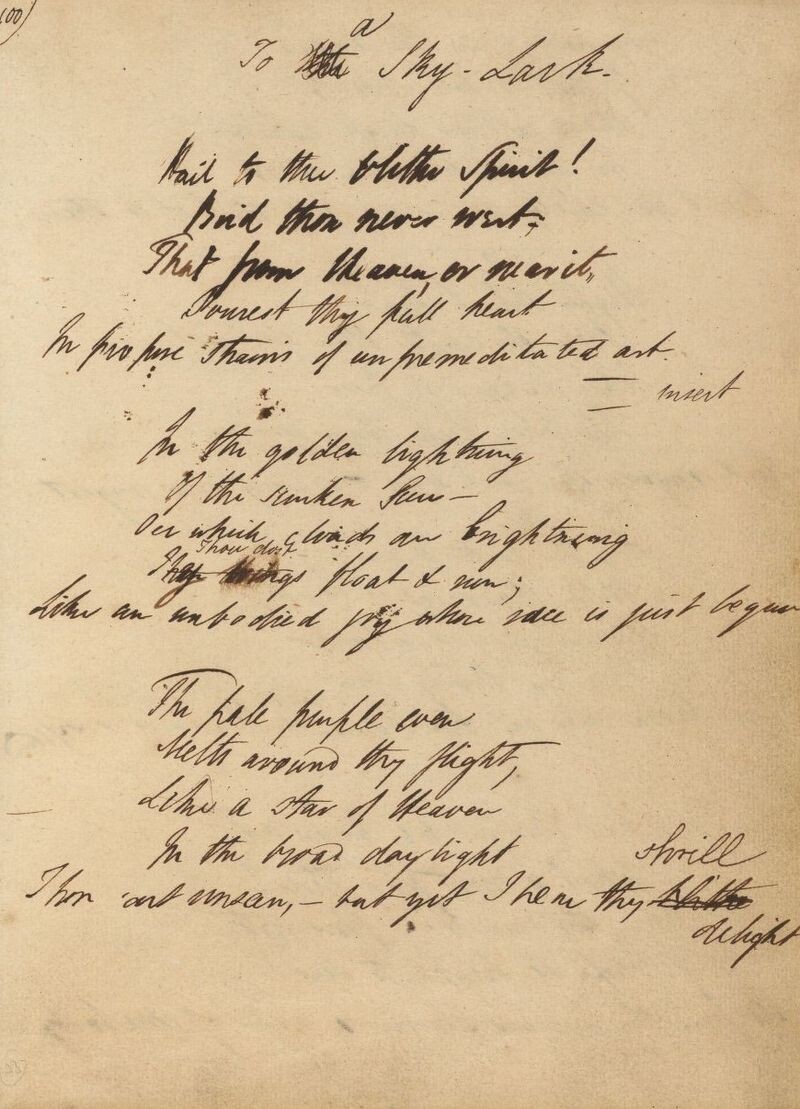 100)
To a Sky-Lark.
Hail to thee blithe Spirit!
Bird thou never wert,
That from Heaven, or near it,
Pourest thy full heart
In profuse strains of unpremeditated art.
insert
In the golden lightning
Of the sunken Sun—
Oer which clouds are brightning
Thou dost
float & run;
Like an unbodied joy whose race is just begun
The pale purple even
Melts around thy flight,
Like a star of Heaven
In the broad daylight
shrill
Thou art unseen,— but yet I hear thy blithe
delight